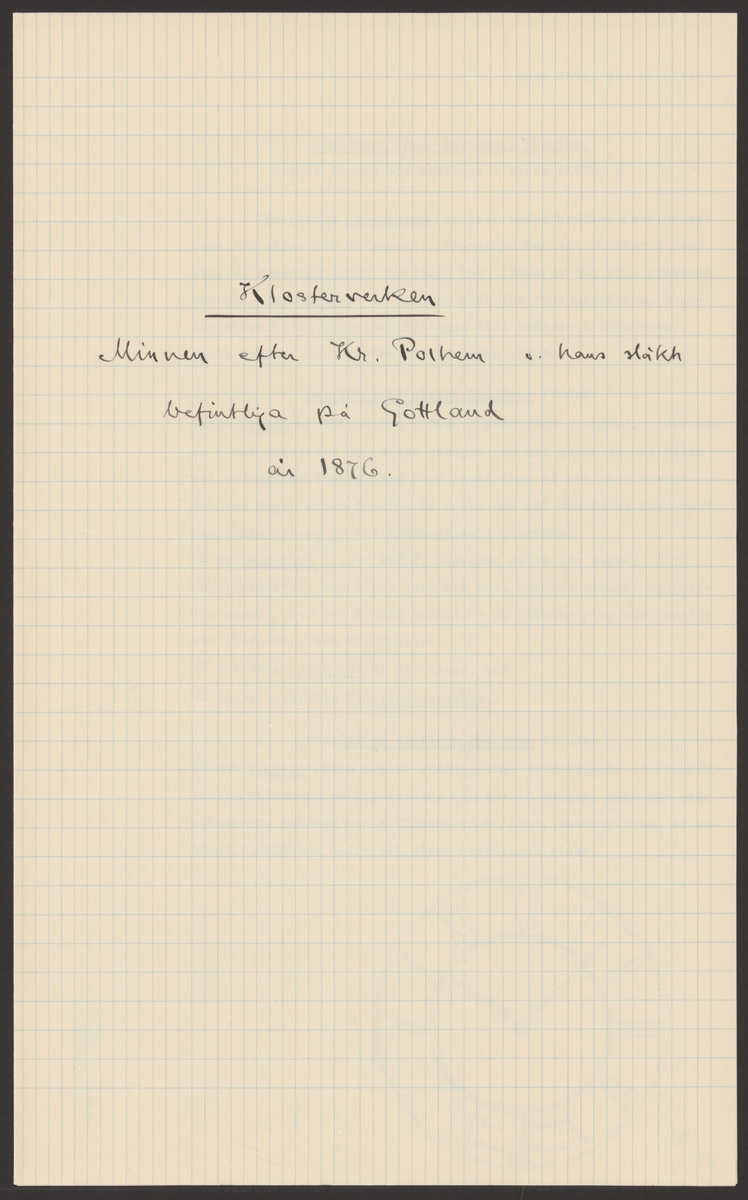 Klosterverken
Minnen efter Kr. Polhem o. hans släkt
befintliga på Gottland
år 1876.